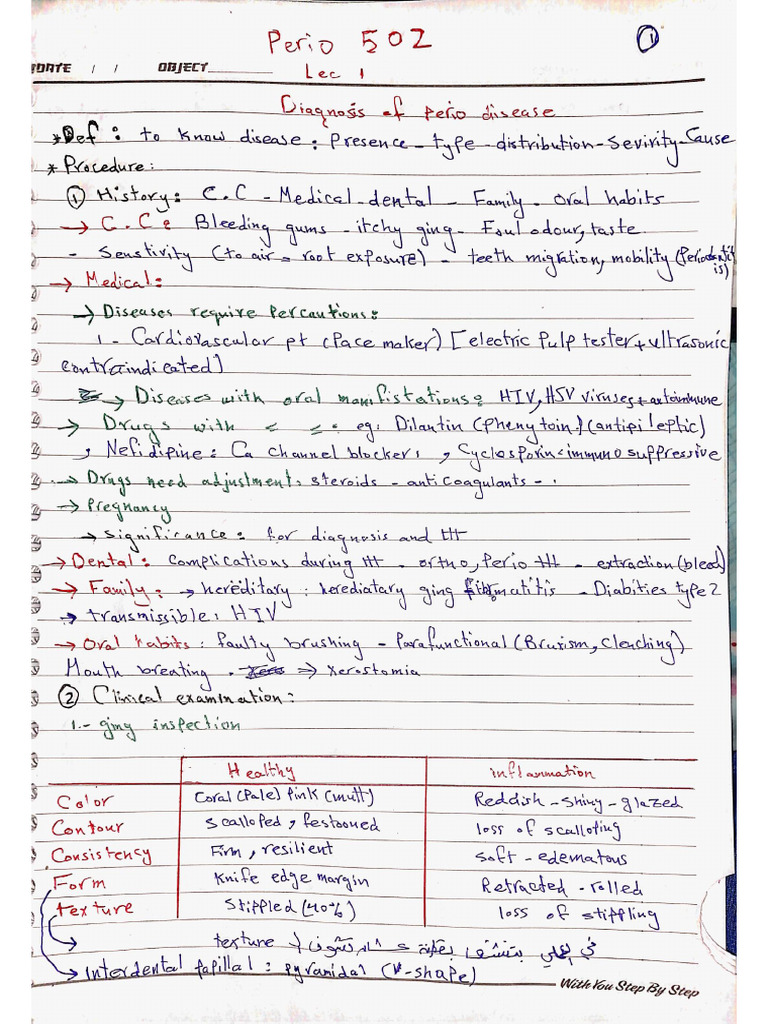 Perio 502
1
DATE / / OBJECT
Lec 1
Diagnosis of perio disease
* Def : to know disease : Presence - type - distribution - Sevirity - Cause
* Procedure :
① History : C.C - Medical - dental - Family - oral habits
→ C.C : Bleeding gums - itchy ging - Foul odour, taste
- Senstivity (to air = root exposure) - teeth migration, mobility (Periodontitis)
→ Medical :
→ Diseases require Percautions :
1 - Cardiovascular pt (Pace maker) [electric Pulp tester + ultrasonic
contraindicated]
→ Diseases with oral manifistations : HIV, HSV viruses + autoimmune
→ Drugs with = = : eg : Dilantin (phenytoin) (antipileptic)
, Nefidipine : Ca channel blockers , Cyclosporin = immuno suppressive
→ Drugs need adjustment : steroids - anticoagulants -
→ Pregnancy
→ significance : for diagnosis and ttt
→ Dental : complications during ttt - ortho, Perio ttt - extraction (bleed)
→ Family : → hereditary : herediatary ging fibromatitis - Diabities type 2
→ transmissible : HIV
→ Oral habits : faulty brushing - Parafunctional (Bruxism, Clenching)
Mouth breating . ⇒ xerostomia
② Clinical examination :
1.- ging inspection
Healthy inflammation
Color Coral (Pale) Pink (mutt) Reddish - shiny - glazed
Contour Scalloped, festooned loss of scalloting
Consistency Firm, resilient Soft - edematous
Form Knife edge margin Retracted - rolled
texture Stippled (40%) loss of stippling
texture
→ Interdental papillal : pyramidal (v-shape)
With You Step By Step